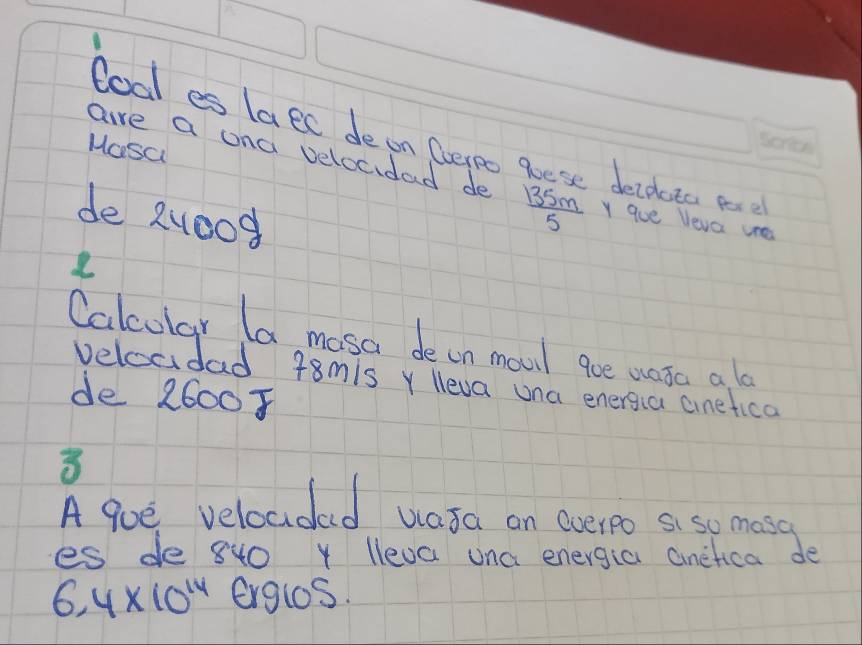 1
Coal es la ec de un Cuerpo que se dezplaza por el
aire a una velocidad de 135m/5 y que lleva una
Masa
de 2400g
2
Calcular la masa de un movil que viaja a la
velocidad 78m/s y lleva una energia cinetica
de 2600J
3
A qué velocidad viaja un cuerpo si su masa
es de 840 y lleva una energia cinética de
6,4x10¹⁴ Ergios.